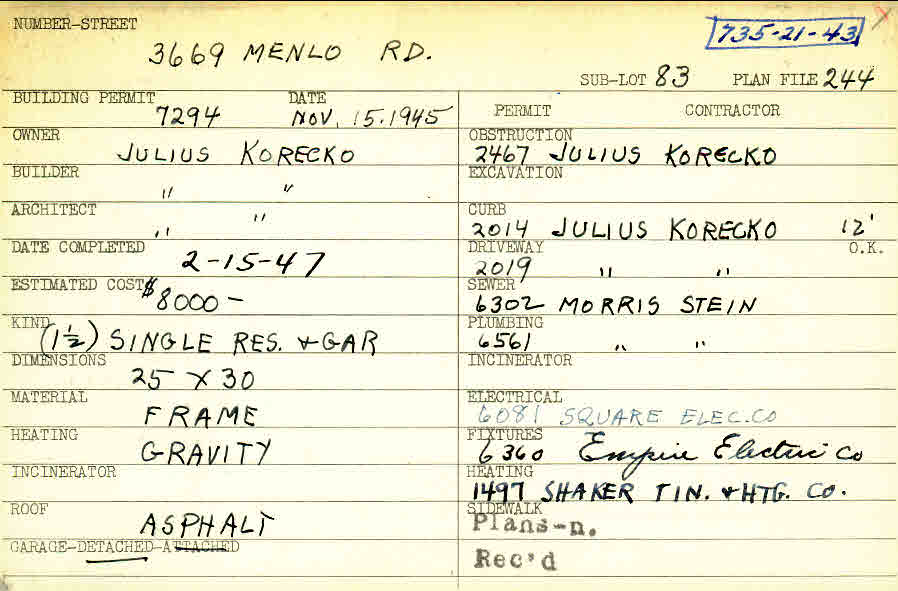 NUMBER-STREET
735-21-43
3669 MENLO RD.
SUB-LOT 83 PLAN FILE 244
BUILDING PERMIT DATE
7294 NOV. 15.1945
OWNER
JULIUS KORECKO
BUILDER
" "
ARCHITECT
" "
DATE COMPLETED
2-15-47
ESTIMATED COST $8000-
KIND
(1½) SINGLE RES. & GAR
DIMENSIONS
25 X 30
MATERIAL
FRAME
HEATING
GRAVITY
INCINERATOR
ROOF
ASPHALT
GARAGE-DETACHED-ATTACHED
PERMIT CONTRACTOR
OBSTRUCTION
2467 JULIUS KORECKO
EXCAVATION
CURB
2014 JULIUS KORECKO 12'
DRIVEWAY O.K.
2019 " "
SEWER
6302 MORRIS STEIN
PLUMBING
6561 " "
INCINERATOR
ELECTRICAL
6081 SQUARE ELEC.CO
FIXTURES
6360 Empire Electric Co
HEATING
1497 SHAKER TIN. & HTG. CO.
SIDEWALK
Plans-n.
Rec'd